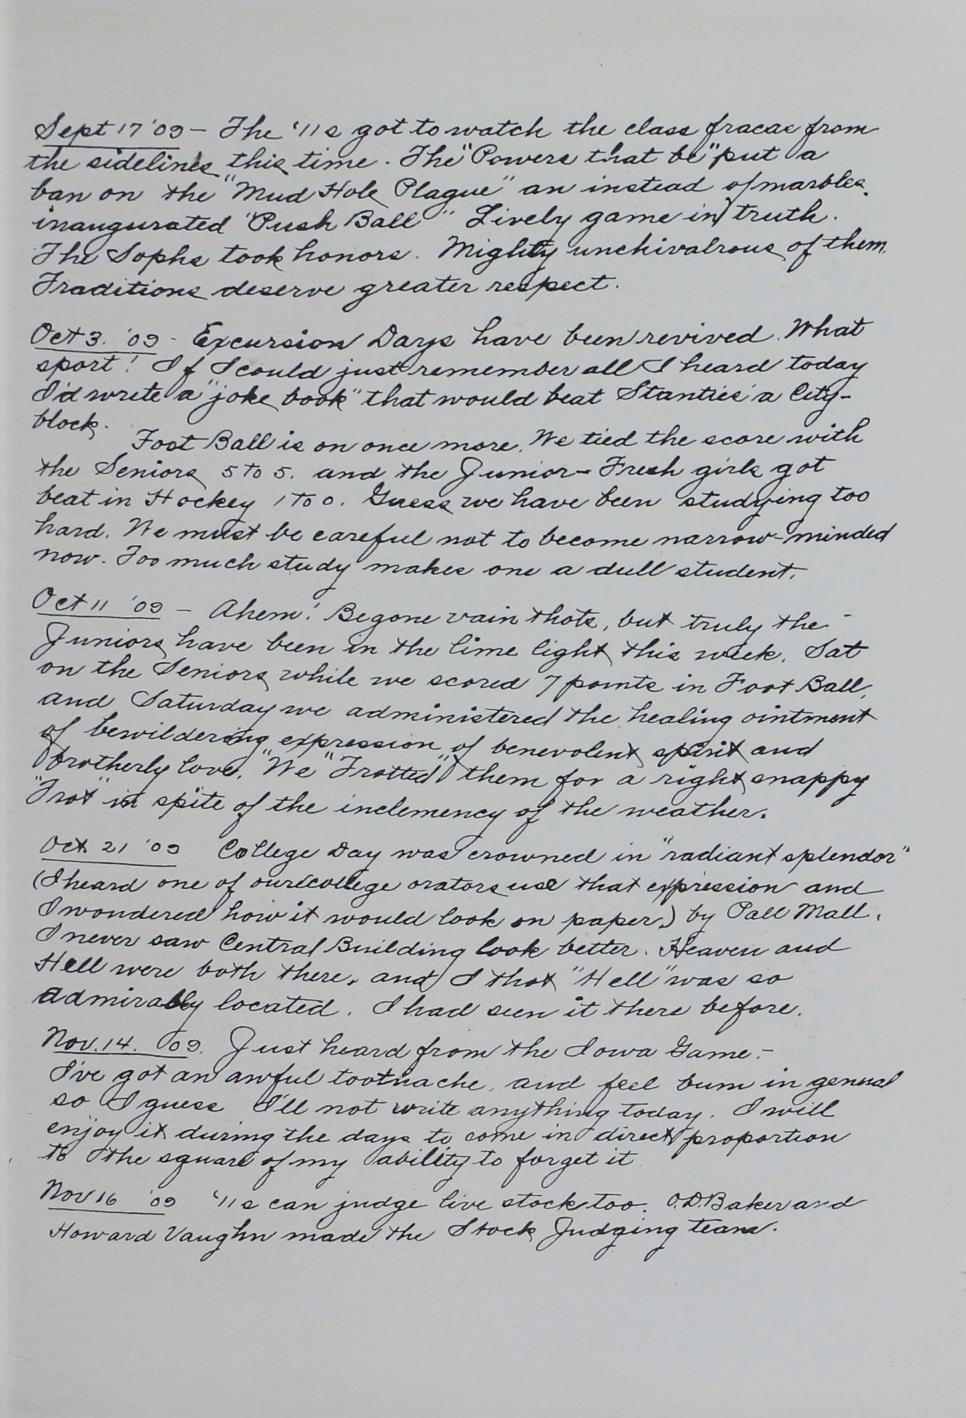 Sept 17 '09 - The '11s got to watch the class fracas from
the sidelines this time. The "Powers that be" put a
ban on the "Mud Hole Plague" an instead of marbles.
inaugurated "Push Ball" Lively game in truth.
The Sophs took honors. Mighty unchivalrous of them.
Traditions deserve greater respect.
Oct 3. '09 - Excursion Days have been revived. What
sport! If I could just remember all I heard today
I'd write a "joke book" that would beat Stanties' a City-
block.
Foot Ball is on once more. We tied the score with
the Seniors 5 to 5. and the Junior-Fresh girls got
beat in Hockey 1 to 0. Guess we have been studying too
hard. We must be careful not to become narrow-minded
now. Too much study makes one a dull student.
Oct 11 '09 - Ahem! Begone vain thots, but truly the
Juniors have been in the lime light this week. Sat
on the Seniors while we scored 7 points in Foot Ball,
and Saturday we administered the healing ointment
of bewildering expression of benevolent spirit and
brotherly love. "We "Trotted" them for a right snappy
"Trot" in spite of the inclemency of the weather.
Oct 21 '09 College Day was crowned in "radiant splendor"
(I heard one of our college orators use that expression and
I wondered how it would look on paper.) by Pall Mall.
I never saw Central Building look better. Heaven and
Hell were both there, and I thot "Hell" was so
admirably located. I had seen it there before.
Nov. 14. '09. Just heard from the Iowa Game.-
I've got an awful toothache, and feel bum in general
so I guess I'll not write anything today. I will
enjoy it during the days to come in direct proportion
to the square of my ability to forget it
Nov 16 '09 '11s can judge live stock too. O.D. Baker and
Howard Vaughn made the Stock Judging team.